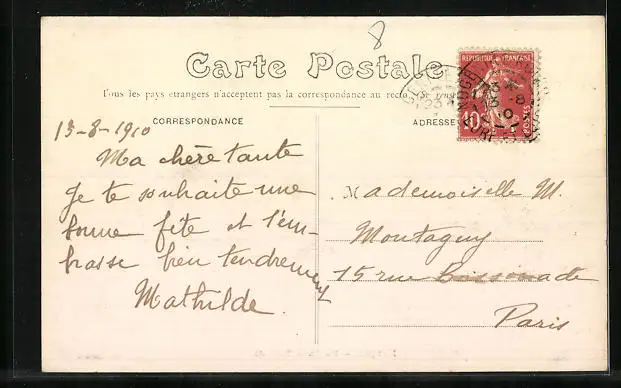 8
Carte Postale
Tous les pays étrangers n'acceptent pas la correspondance au recto
CORRESPONDANCE
ADRESSE
REPUBLIQUE FRANÇAISE
10
POSTES
13-8-1910
Ma chère tante
Je te souhaite une
bonne fête et t'em-
brasse bien tendrement
Mathilde.
Mademoiselle M.
Montaguy
15 rue Boissonade
Paris